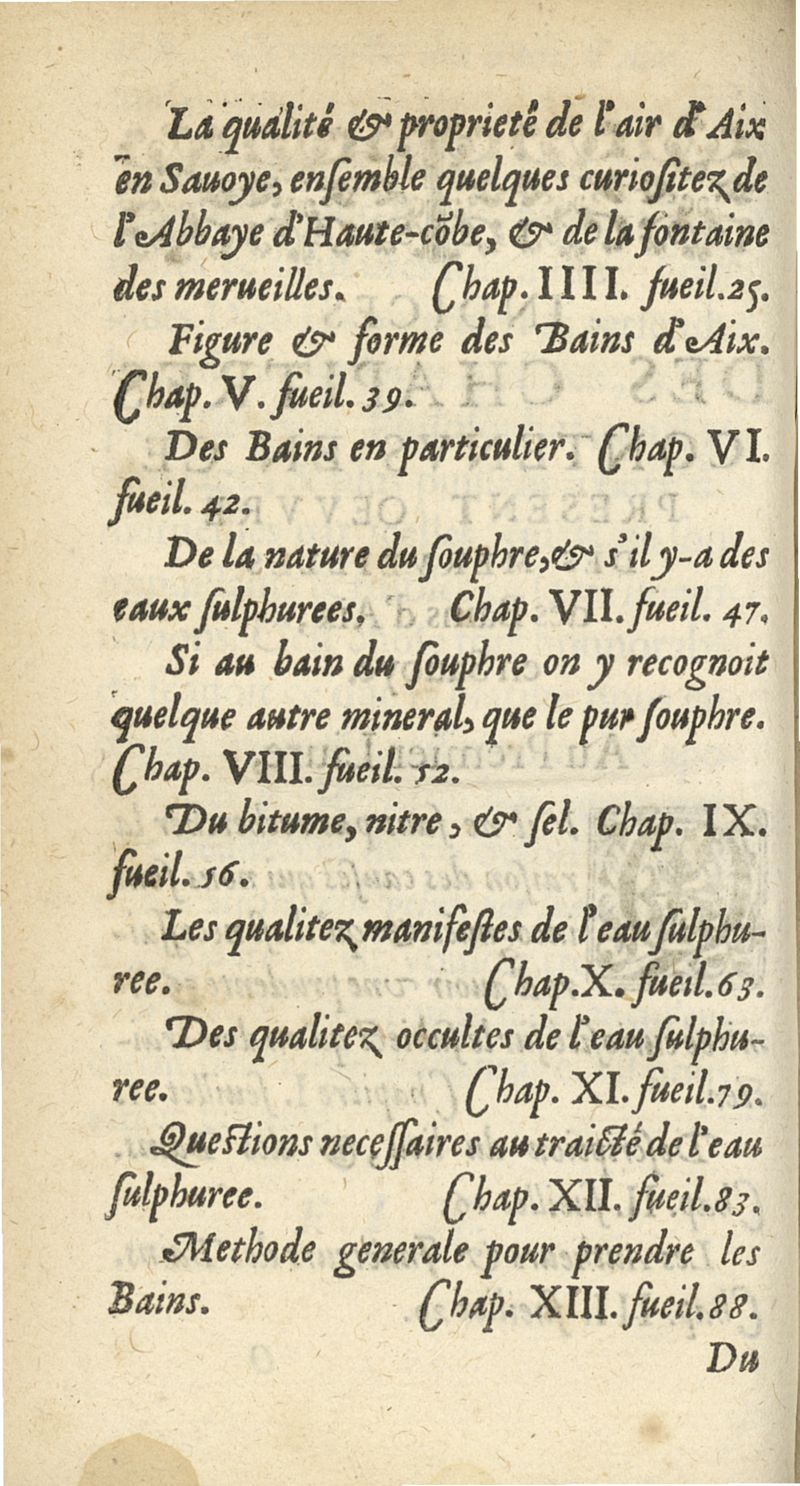 La qualité & proprieté de l'air d'Aix
en Sauoye, enſemble quelques curioſitez de
l'Abbaye d'Haute-cõbe, & de la fontaine
des merueilles. Chap. IIII. fueil. 25.
Figure & forme des Bains d'Aix.
Chap. V. fueil. 39.
Des Bains en particulier. Chap. VI.
fueil. 42.
De la nature du ſouphre, & s'il y-a des
eaux ſulphurees. Chap. VII. fueil. 47.
Si au bain du ſouphre on y recognoit
quelque autre mineral, que le pur ſouphre.
Chap. VIII. fueil. 52.
Du bitume, nitre, & ſel. Chap. IX.
fueil. 56.
Les qualitez manifeſtes de l'eau ſulphu-
ree. Chap. X. fueil. 63.
Des qualitez occultes de l'eau ſulphu-
ree. Chap. XI. fueil. 79.
Queſtions neceſſaires au traicté de l'eau
ſulphuree. Chap. XII. fueil. 83.
Methode generale pour prendre les
Bains. Chap. XIII. fueil. 88.
Du